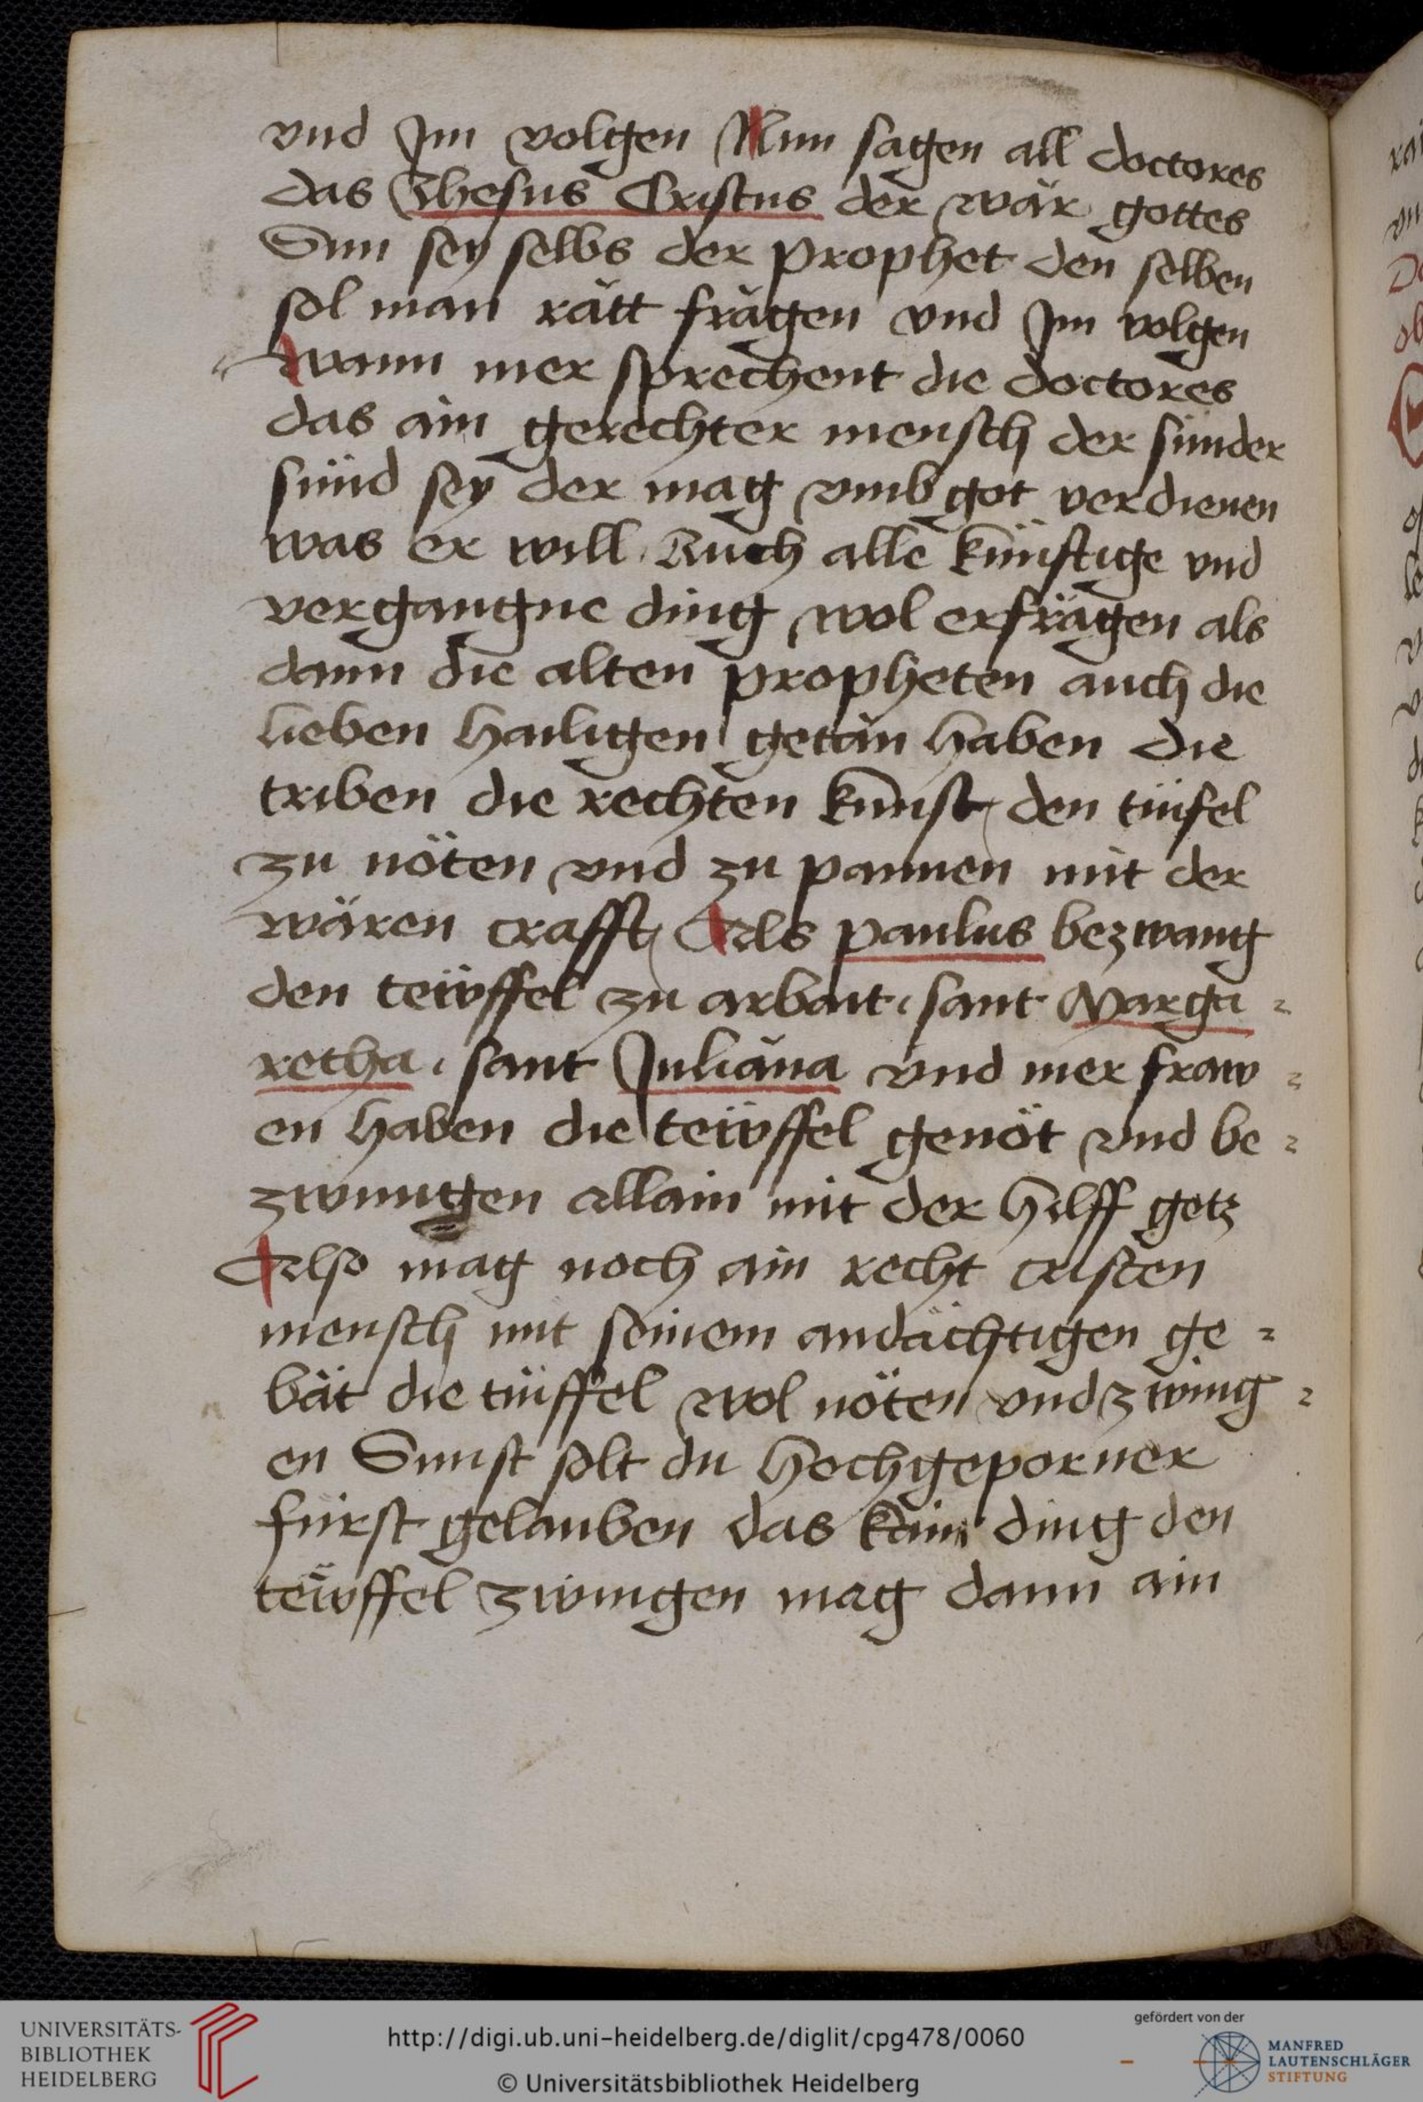 vnd Im volgen Nun sagen all doctores
das Jhesus Cristus der wär gottes
Sun sey selbs der prophet den selben
sol man rått frågen vnd Im volgen
wann mer sprechent die doctores
das ain gerechter mensch der sunder
sünd sey der mag vmb got verdienen
was er will. Auch alle künftige vnd
vergangne ding wol erfrägen als
dann die alten propheten auch die
lieben hailigen getän haben die
triben die rechten kunst den tüifel
zu nöten vnd zu pannen mit der
wären crafft Als paulus bezwang
den teüffel zu arbait. sant Marga=
retha. sant Juliäna vnd mer fraw=
en haben die teüffel genöt vnd be=
zwungen allain mit der hilff getz
Also mag noch ain recht cristen
mensch mit seinem andächtigen ge=
bät die tüiffel wol nöten vnd zwing=
en Sunst solt du hochgeporner
fürst gelauben das kain ding den
teüffel zwingen mag dann ain
UNIVERSITÄTS-
BIBLIOTHEK
HEIDELBERG
http://digi.ub.uni-heidelberg.de/diglit/cpg478/0060
© Universitätsbibliothek Heidelberg
gefördert von der
MANFRED
LAUTENSCHLÄGER
STIFTUNG